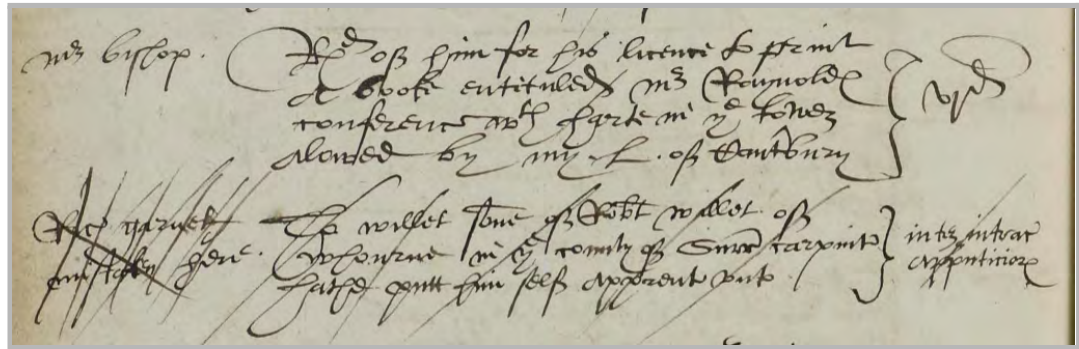 mr bishop. Rd of him for his licence to print
A booke entituled mr Raynold
conference wth harte in ye tower
alowed by my L. of Cantbury
vjd
Ric garnet Tho willet sone of Robt willet of
mistaken here. in ye county of Surr carpinter
hathe putt him self apprent vnto
inter intrac
apprenticior